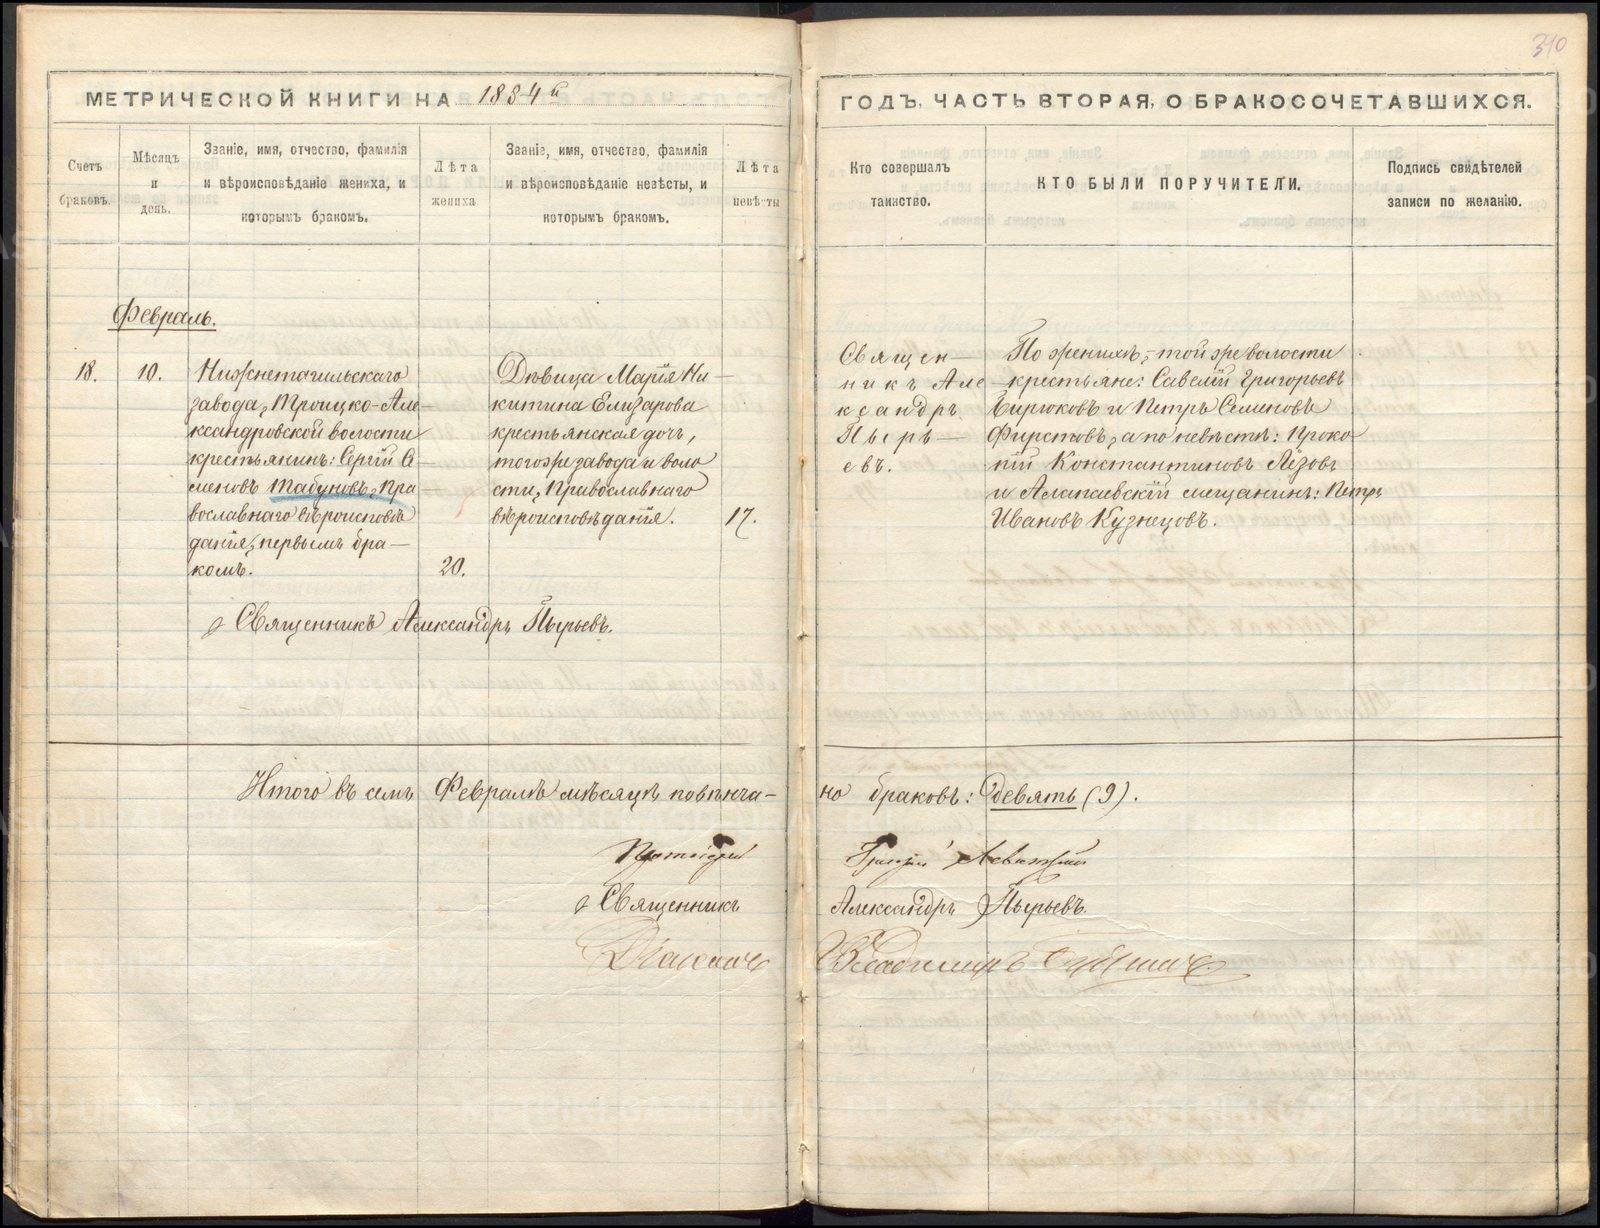 310
МЕТРИЧЕСКОЙ КНИГИ НА 1884й
ГОДЪ, ЧАСТЬ ВТОРАЯ, О БРАКОСОЧЕТАВШИХСЯ.
Счетъ
браковъ.
Мѣсяцъ
и
день.
Званіе, имя, отчество, фамилія
и вѣроисповѣданіе жениха, и
которымъ бракомъ.
Лѣта
жениха
Званіе, имя, отчество, фамилія
и вѣроисповѣданіе невѣсты, и
которымъ бракомъ.
Лѣта
невѣсты
Кто совершалъ
таинство.
КТО БЫЛИ ПОРУЧИТЕЛИ.
Подпись свидѣтелей
записи по желанію.
Февраль.
18.
10.
Нижнетагильскаго
завода, Троицко-Але-
ксандровской волости
крестьянинъ: Сергій Се-
меновъ Табуновъ, Пра-
вославнаго вѣроисповѣ
данія, первымъ бра-
комъ.
20.
Дѣвица Марія Ни-
китина Елизарова
крестьянская дочь,
тогоже завода и воло
сти, Православнаго
вѣроисповѣданія.
17.
Священ-
никъ Але-
ксандръ
Пырь-
евъ.
По женихѣ, той же волости
крестьяне: Савелій Григорьевъ
Бирюковъ и Петръ Семеновъ
Фирстовъ, а по невѣстѣ: Проко
пій Константиновъ Лёзовъ
и Алапаевскій мещанинъ: Петръ
Ивановъ Кузнецовъ.
Священникъ Александръ Пырьевъ.
Итого въ семъ Февралѣ мѣсяцѣ повѣнча-
но браковъ: девять (9).
Протоіерей
Священникъ Александръ Пырьевъ.
Діаконъ Владимиръ